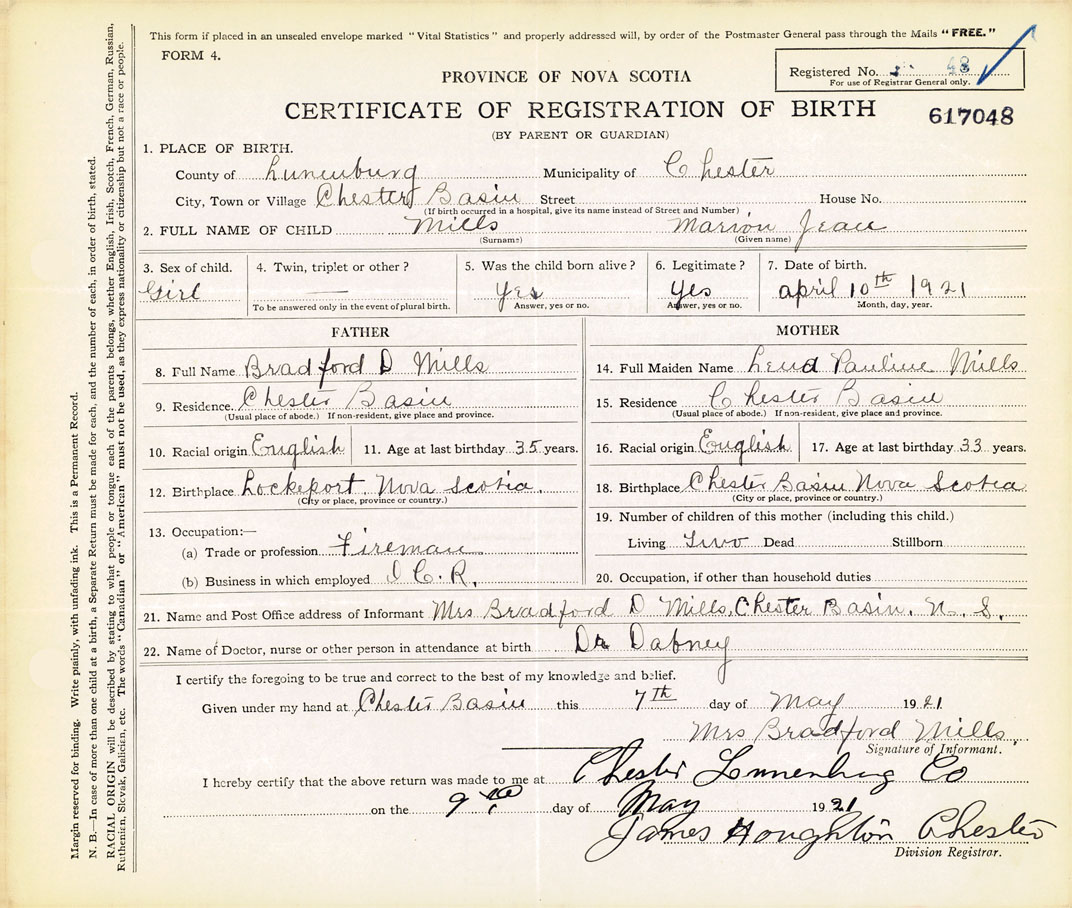 This form if placed in an unsealed envelope marked "Vital Statistics" and properly addressed will, by order of the Postmaster General pass through the Mails "FREE."
FORM 4.
PROVINCE OF NOVA SCOTIA
Registered No. 48
For use of Registrar General only.
CERTIFICATE OF REGISTRATION OF BIRTH
617048
(BY PARENT OR GUARDIAN)
1. PLACE OF BIRTH.
County of Lunenburg Municipality of Chester
City, Town or Village Chester Basin Street House No.
(If birth occurred in a hospital, give its name instead of Street and Number)
2. FULL NAME OF CHILD Mills Marion Jean
(Surname) (Given name)
3. Sex of child. 4. Twin, triplet or other? 5. Was the child born alive? 6. Legitimate? 7. Date of birth.
Girl — Yes Yes april 10th 1921
To be answered only in the event of plural birth. Answer, yes or no. Answer, yes or no. Month, day, year.
FATHER
8. Full Name Bradford D Mills
9. Residence. Chester Basin
(Usual place of abode.) If non-resident, give place and province.
10. Racial origin English 11. Age at last birthday 35 years.
12. Birthplace Lockeport, Nova Scotia.
(City or place, province or country.)
13. Occupation:—
(a) Trade or profession Fireman
(b) Business in which employed I C. R.
MOTHER
14. Full Maiden Name Lena Pauline Mills
15. Residence Chester Basin
(Usual place of abode.) If non-resident, give place and province.
16. Racial origin English 17. Age at last birthday 33 years.
18. Birthplace Chester Basin Nova Scotia
(City or place, province or country.)
19. Number of children of this mother (including this child.)
Living Two Dead Stillborn
20. Occupation, if other than household duties
21. Name and Post Office address of Informant Mrs Bradford D Mills, Chester Basin, N. S.
22. Name of Doctor, nurse or other person in attendance at birth Dr Dabney
I certify the foregoing to be true and correct to the best of my knowledge and belief.
Given under my hand at Chester Basin this 7th day of May 1921
Mrs Bradford Mills.
Signature of Informant.
I hereby certify that the above return was made to me at Chester Lunenburg Co
on the 9th day of May 1921
James Houghton Chester
Division Registrar.
Margin reserved for binding. Write plainly, with unfading ink. This is a Permanent Record.
N. B.—In case of more than one child at a birth, a Separate Return must be made for each, and the number of each, in order of birth, stated.
RACIAL ORIGIN will be described by stating to what people or tongue each of the parents belongs, whether English, Irish, Scotch, French, German, Russian,
Ruthenien, Slovak, Galicien, etc. The words "Canadian" or "American" must not be used, as they express nationality or citizenship but not a race or people.